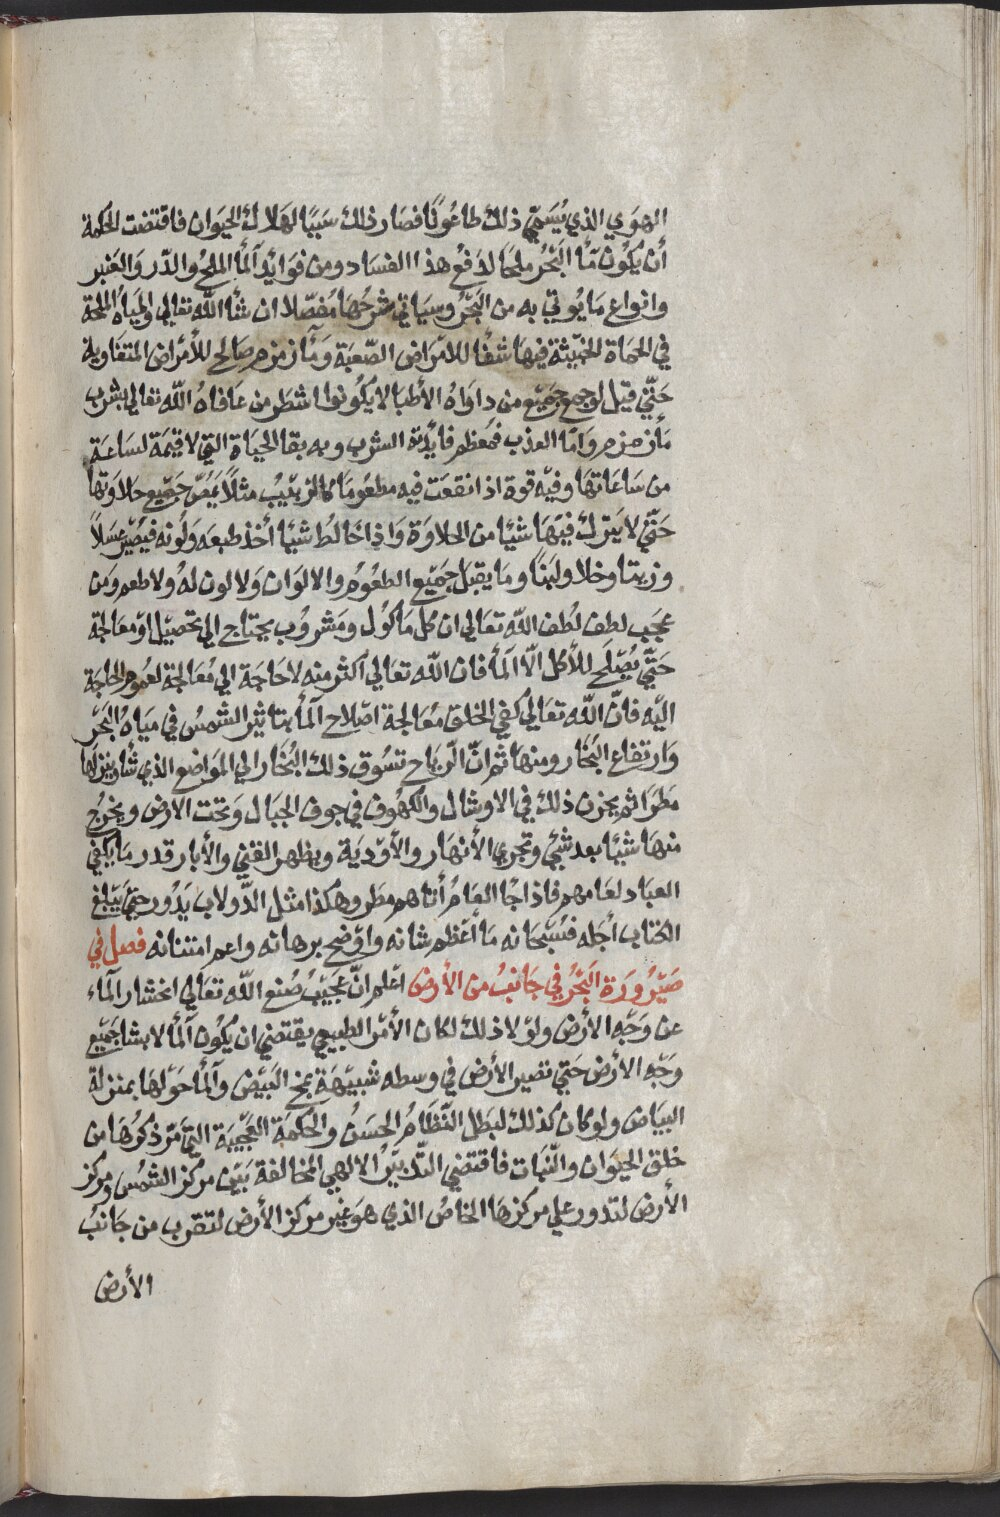 الهوي الذي يُسَمّي ذلك طاعُونًا فصَار ذلك سَبَبًا لهَلاك الحَيَوان فاقتضت الحكمة
أن يكُون مَأُ البَحْرُ ملحًا لدَفعُ هذا الفسَاد ومن فوَايْد ألمأ الملحُ والدّر والعَنبر
وانواع مَا يُوتي به من البَحْرُ وسيَاتي شرحُهَا مُفصّلا ان شأ اللّه تعالي والميَاهُ الملحة
في الحمَاة الخبيثة فيهَا شفأ للامرَاض الصّعبَة ومَأ زمزم صَالح للأمرَاض المتفاوية
حَتّي قيل لوجمع جَميْع من داوَاهُ الأطبا لا يكُونوا شطَر من عَافاهُ اللّه تعالي بشرب
مَأ زمزم وَامّا العذب فمعظم فايْدته الشرب وبه بقا الحيَاة التي لا قيمَة لسَاعَة
من سَاعَاتهَا وفيْه قوة اذا انقعَت فيه مطعُومَا كالزبيْب مثلاً يَمُصّ جَميْع حلاوَتها
حَتّي لا يترك فيْهَا شيْا من الحلاوَة وَاذا خَالطُ شيْا أخذ طبعَه وَلُونه فيصيْر عسَلاً
وزيتا وخلا ولبَنًا ومَا يقبَل جَميْع الطعُوْم والالوَان وَلا لون لهُ ولا طعم وَمن
عَجَب لطف لُطف اللّه تعَالي ان كل مَاكُول ومَشرُوب يحتاج الي تحصيْل او مُعَالجة
حَتّي يُصْلحَ للأكل الاّ ألمأ فان اللّه تعَالي أكثر منه لا حَاجَة الي مُعَالجة لعُمُوم الحَاجَة
اليْه فانّ اللّه تعَالي كفي الخلق مُعَالجة اصْلاح ألمأ بتاثيْر الشمسُ في ميَاهُ البَحْر
وَارتفاع البُخَار ومنهَا ثم انّ الريَاح تسُوق ذلك البُخَار الي الموَاضع الذي شأ وينزلهَا
مَطَرًا ثم يخزن ذلك في الاوشال والكهُوف في جوف الجبَال وَتحت الارض ويخرُج
منهَا شيْئا بعد شيْ وتجري الأنهَار والأوْديَة ويظهر القني والأبار قدر مَا يكفي
العبَاد لعَامهم فاذا جَأ العَامُ أتاهم مطَر وهكذا مثل الدّولاب يَدُور حَتيّ يَبْلغ
الكتاب أجله فسُبْحَانه مَا أعْظم شانه واوْضَح برهَانه واعم امتنانه فصل في
صَيْرُورَة البَحْرُ في جَانبُ من الأرض أعلم انّ عَجيْبُ صُنع اللّه تعَالي انحسَار ألمآء
عن وَجْه الأرض ولوْلا ذلك لكان الأمرْ الطبيعي يقتضي ان يكُون ألمأ لابسًا جَميْع
وَجْه الأرض حَتي تصير الأرض في وسطه شبيْهَة بمخ البَيْض وَألمأ حَوْلهَا بمنزلة
البيَاض ولو كان كذلك لبَطل النّظَامُ الحَسَنُ والحكمَة العَجيْبَة التي مَرّ ذكرُهَا من
خلق الحَيوَان والنّبَات فاقتضي التّدبيْرُ الالهي المخالفة بَيْن مركز الشمسُ ومركز
الأرض لتدور علي مركزهَا الخاصُ الذي هوَ غيْر مركز الأرض لتقرب من جَانبُ
الأرض